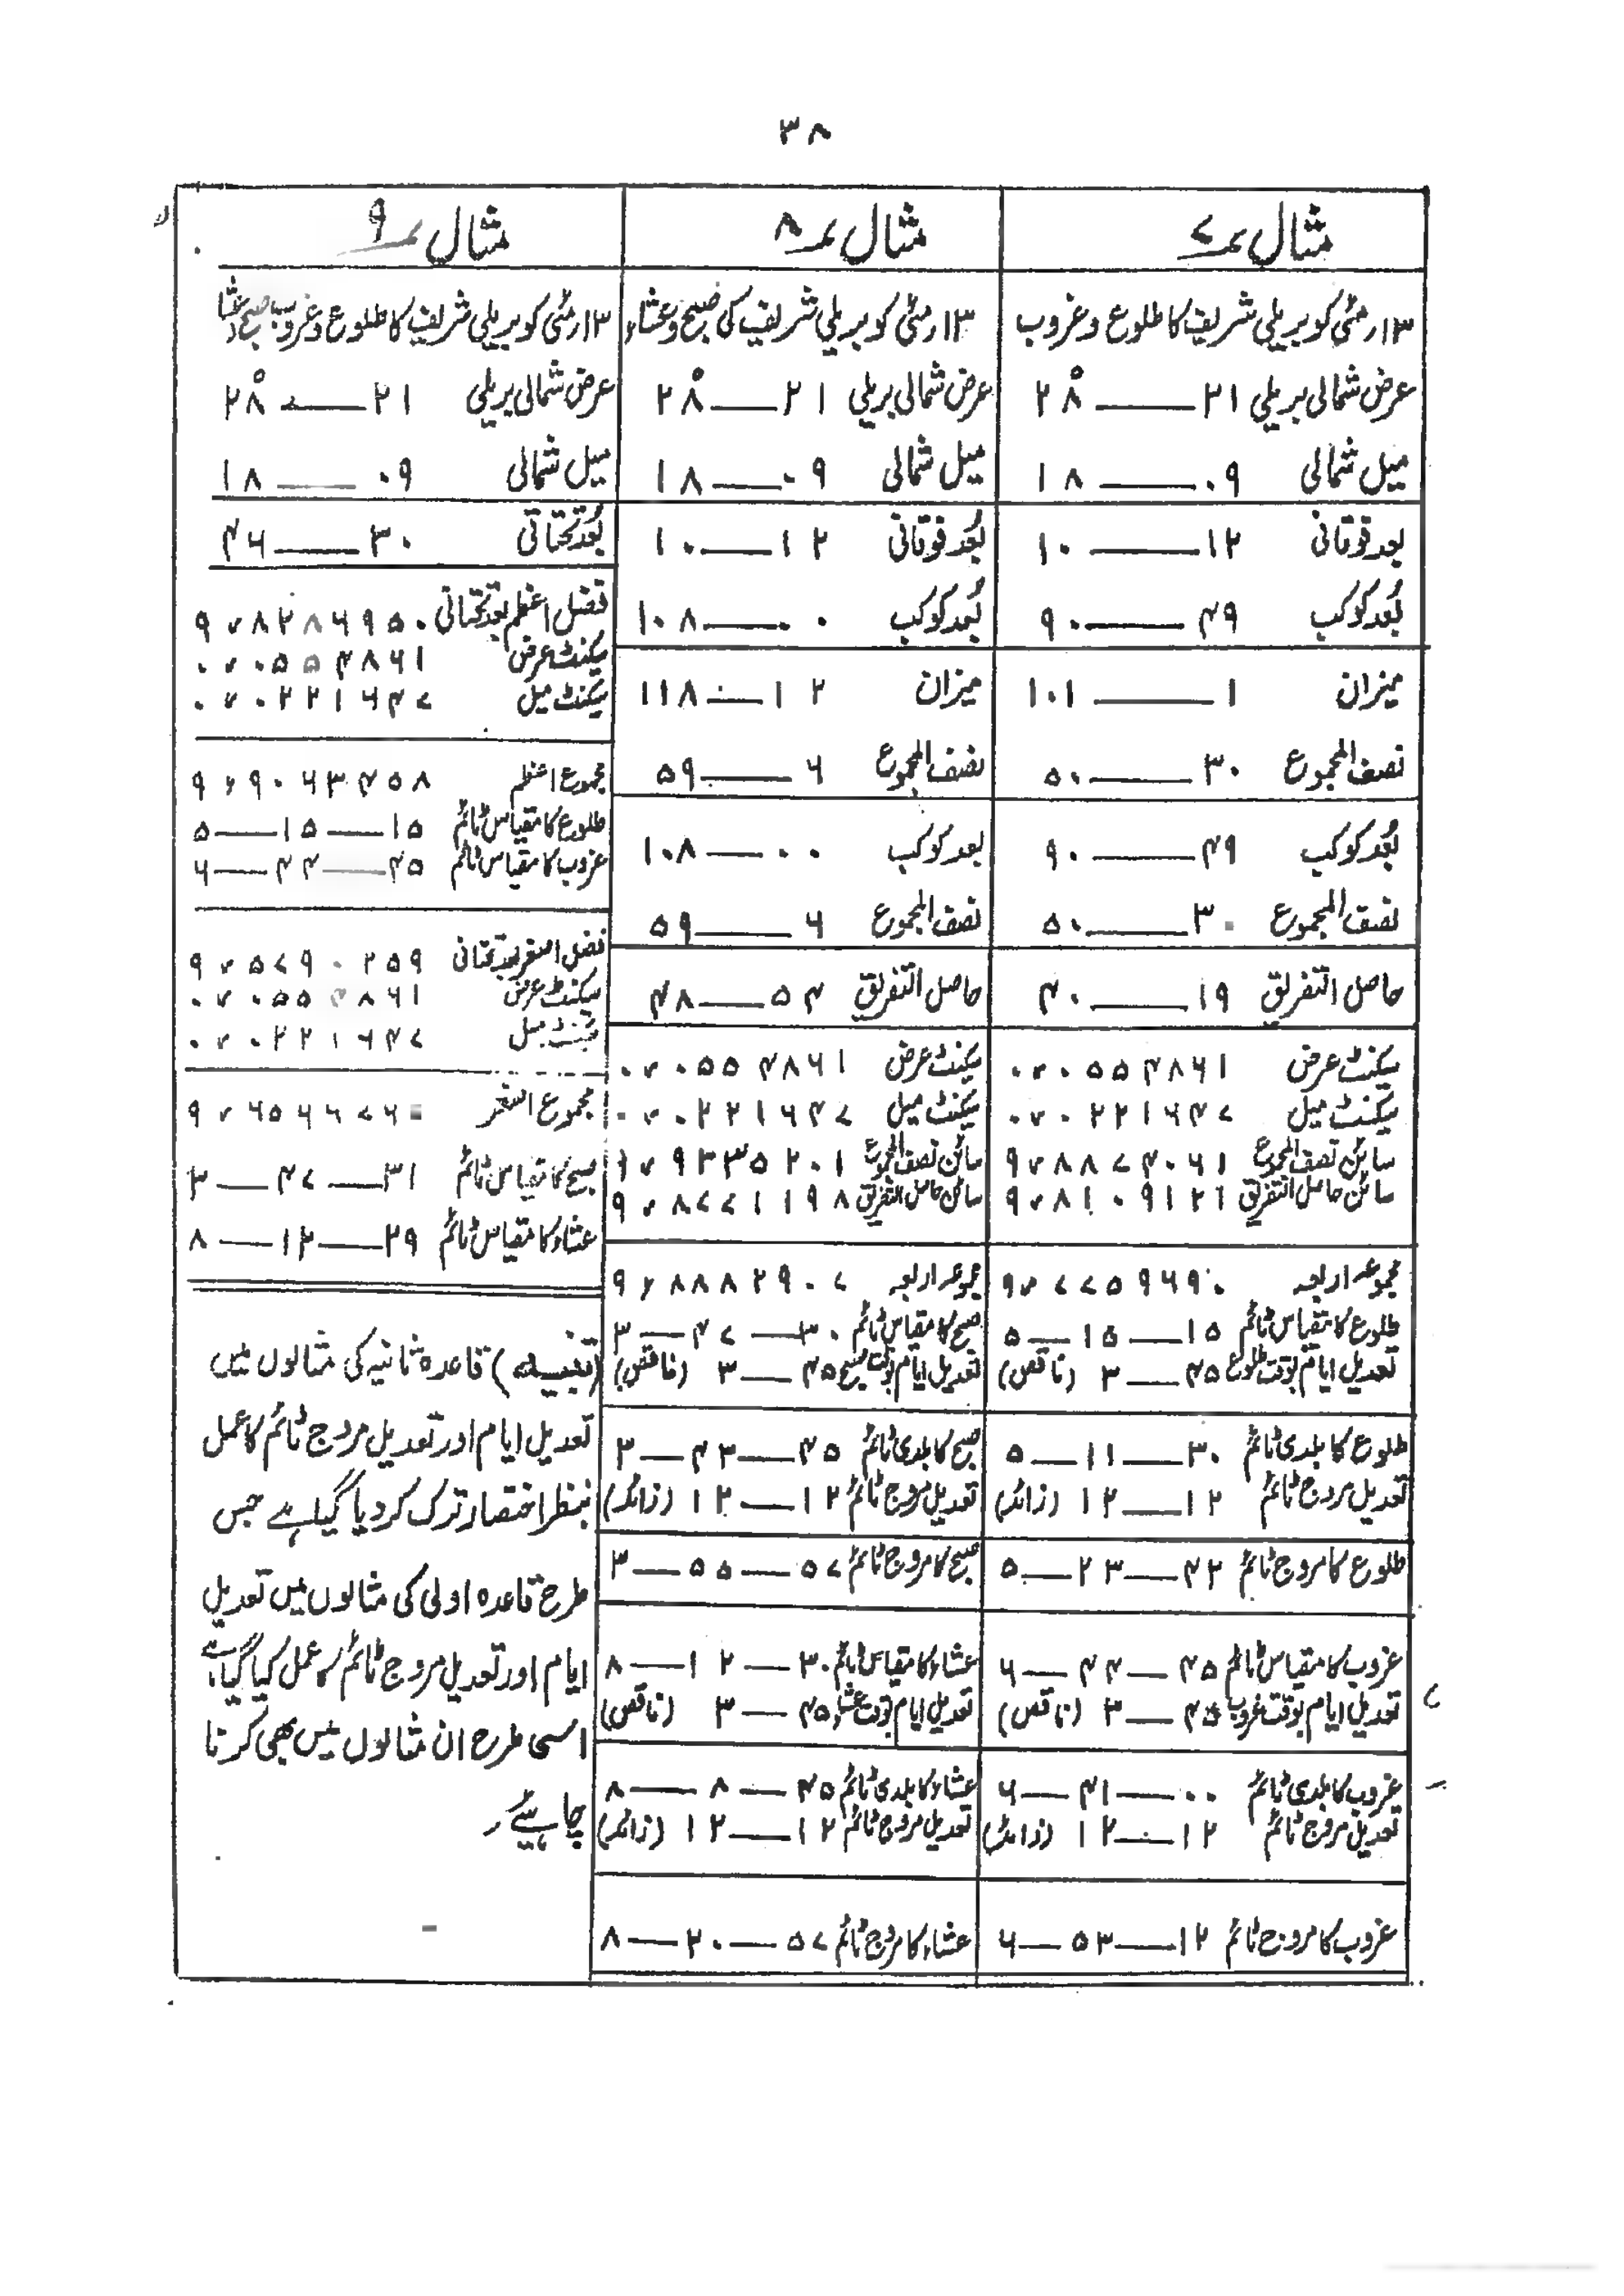 ۳۸
مثال نمبر ۷
۱۳ر مئی کو بریلی شریف کا طلوع و غروب
عرض شمالی بریلی ۲۱ — ۲۸°
میل شمالی ۰۹ — ۱۸
بعد فوقانی ۱۲ — ۱۰
بُعد کوکب ۴۹ — ۹۰
میزان ۱ — ۱۰۱
نصف المجموع ۳۰ — ۵۰
بُعد کوکب ۴۹ — ۹۰
نصف المجموع ۳۰ — ۵۰
حاصل التفریق ۱۹ — ۴۰
سکنٹ عرض ۰٫۰۵۵۴۸۶۱
سکنٹ میل ۰٫۰۲۲۱۶۴۷
سائن نصف المجموع ۹٫۸۸۷۴۰۶۱
سائن حاصل التفریق ۹٫۸۱۰۹۱۲۱
مجموعہ اربعہ ۹٫۷۷۵۹۶۹۰
طلوع کا مقیاس ٹائم ۱۵ — ۱۵ — ۵
تعدیل ایام بوقت طلوع ۴۵ — ۳ (ناقص)
طلوع کا بلدی ٹائم ۳۰ — ۱۱ — ۵
تعدیل مروج ٹائم ۱۲ — ۱۲ (زائد)
طلوع کا مروج ٹائم ۴۲ — ۲۳ — ۵
غروب کا مقیاس ٹائم ۴۵ — ۴۴ — ۶
تعدیل ایام بوقت غروب ۴۵ — ۳ (ناقص)
غروب کا بلدی ٹائم ۰۰ — ۴۱ — ۶
تعدیل مروج ٹائم ۱۲ — ۱۲ (زائد)
غروب کا مروج ٹائم ۱۲ — ۵۳ — ۶
مثال نمبر ۸
۱۳ر مئی کو بریلی شریف کی صبح و عشاء
عرض شمالی بریلی ۲۱ — ۲۸°
میل شمالی ۰۹ — ۱۸
بُعد فوقانی ۱۲ — ۱۰
بُعد کوکب ۰۰ — ۱۰۸
میزان ۱۲ — ۱۱۸
نصف المجموع ۶ — ۵۹
بعد کوکب ۰۰ — ۱۰۸
نصف المجموع ۶ — ۵۹
حاصل التفریق ۵۴ — ۴۸
سکنٹ عرض ۰٫۰۵۵۴۸۶۱
سکنٹ میل ۰٫۰۲۲۱۶۴۷
سائن نصف المجموع ۹٫۹۳۳۵۲۰۱
سائن حاصل التفریق ۹٫۸۷۷۱۱۹۸
مجموعہ اربعہ ۹٫۸۸۸۲۹۰۷
صبح کا مقیاس ٹائم ۳۰ — ۴۷ — ۳
تعدیل ایام بوقت صبح ۴۵ — ۳ (ناقص)
صبح کا بلدی ٹائم ۴۵ — ۴۳ — ۳
تعدیل مروج ٹائم ۱۲ — ۱۲ (زائد)
صبح کا مروج ٹائم ۵۷ — ۵۵ — ۳
عشاء کا مقیاس ٹائم ۳۰ — ۱۲ — ۸
تعدیل ایام بوقت عشاء ۴۵ — ۳ (ناقص)
عشاء کا بلدی ٹائم ۴۵ — ۸ — ۸
تعدیل مروج ٹائم ۱۲ — ۱۲ (زائد)
عشاء کا مروج ٹائم ۵۷ — ۲۰ — ۸
مثال نمبر ۹
۱۳ر مئی کو بریلی شریف کا طلوع و غروب صبح و عشا
عرض شمالی بریلی ۲۱ — ۲۸°
میل شمالی ۰۹ — ۱۸
بُعد تحتانی ۳۰ — ۴۶
فضل اعظم بعد تحتانی ۹٫۸۲۸۶۹۵۰
سکنٹ عرض ۰٫۰۵۵۴۸۶۱
سکنٹ میل ۰٫۰۲۲۱۶۴۷
مجموع اعظم ۹٫۹۰۶۳۴۵۸
طلوع کا مقیاس ٹائم ۱۵ — ۱۵ — ۵
غروب کا مقیاس ٹائم ۴۵ — ۴۴ — ۶
فضل اصغر بعد تحتانی ۹٫۵۷۹۰۲۵۹
سکنٹ عرض ۰٫۰۵۵۴۸۶۱
سکنٹ میل ۰٫۰۲۲۱۶۴۷
مجموع اصغر ۹٫۶۵۶۶۷۶
صبح کا مقیاس ٹائم ۳۱ — ۴۷ — ۳
عشاء کا مقیاس ٹائم ۲۹ — ۱۲ — ۸
(تنبیہ) قاعدہ ثانیہ کی مثالوں میں
تعدیل ایام اور تعدیل مروج ٹائم کا عمل
بنظر اختصار ترک کر دیا گیا ہے جس
طرح قاعدہ اولی کی مثالوں میں تعدیل
ایام اور تعدیل مروج ٹائم کا عمل کیا گیا ہے،
اسی طرح ان مثالوں میں بھی کرنا
چاہیئے۔